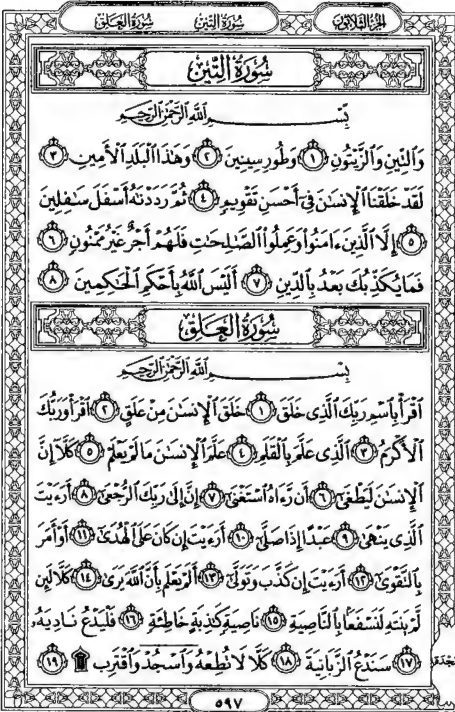 الجزء الثلاثون سورة التين سورة العلق
سُورَةُ التِّينِ
بِسْمِ ٱللَّهِ ٱلرَّحْمَٰنِ ٱلرَّحِيمِ
وَٱلتِّينِ وَٱلزَّيْتُونِ ١ وَطُورِ سِينِينَ ٢ وَهَٰذَا ٱلْبَلَدِ ٱلْأَمِينِ ٣
لَقَدْ خَلَقْنَا ٱلْإِنسَٰنَ فِىٓ أَحْسَنِ تَقْوِيمٍ ٤ ثُمَّ رَدَدْنَٰهُ أَسْفَلَ سَٰفِلِينَ
٥ إِلَّا ٱلَّذِينَ ءَامَنُوا۟ وَعَمِلُوا۟ ٱلصَّٰلِحَٰتِ فَلَهُمْ أَجْرٌ غَيْرُ مَمْنُونٍ ٦
فَمَا يُكَذِّبُكَ بَعْدُ بِٱلدِّينِ ٧ أَلَيْسَ ٱللَّهُ بِأَحْكَمِ ٱلْحَٰكِمِينَ ٨
سُورَةُ العَلَقِ
بِسْمِ ٱللَّهِ ٱلرَّحْمَٰنِ ٱلرَّحِيمِ
ٱقْرَأْ بِٱسْمِ رَبِّكَ ٱلَّذِى خَلَقَ ١ خَلَقَ ٱلْإِنسَٰنَ مِنْ عَلَقٍ ٢ ٱقْرَأْ وَرَبُّكَ
ٱلْأَكْرَمُ ٣ ٱلَّذِى عَلَّمَ بِٱلْقَلَمِ ٤ عَلَّمَ ٱلْإِنسَٰنَ مَا لَمْ يَعْلَمْ ٥ كَلَّآ إِنَّ
ٱلْإِنسَٰنَ لَيَطْغَىٰٓ ٦ أَن رَّءَاهُ ٱسْتَغْنَىٰٓ ٧ إِنَّ إِلَىٰ رَبِّكَ ٱلرُّجْعَىٰٓ ٨ أَرَءَيْتَ
ٱلَّذِى يَنْهَىٰ ٩ عَبْدًا إِذَا صَلَّىٰٓ ١٠ أَرَءَيْتَ إِن كَانَ عَلَى ٱلْهُدَىٰٓ ١١ أَوْ أَمَرَ
بِٱلتَّقْوَىٰٓ ١٢ أَرَءَيْتَ إِن كَذَّبَ وَتَوَلَّىٰٓ ١٣ أَلَمْ يَعْلَم بِأَنَّ ٱللَّهَ يَرَىٰ ١٤ كَلَّا لَئِن
لَّمْ يَنتَهِ لَنَسْفَعًۢا بِٱلنَّاصِيَةِ ١٥ نَاصِيَةٍ كَٰذِبَةٍ خَاطِئَةٍ ١٦ فَلْيَدْعُ نَادِيَهُۥ
١٧ سَنَدْعُ ٱلزَّبَانِيَةَ ١٨ كَلَّا لَا تُطِعْهُ وَٱسْجُدْ وَٱقْتَرِب ۩ ١٩
سجدة
٥٩٧